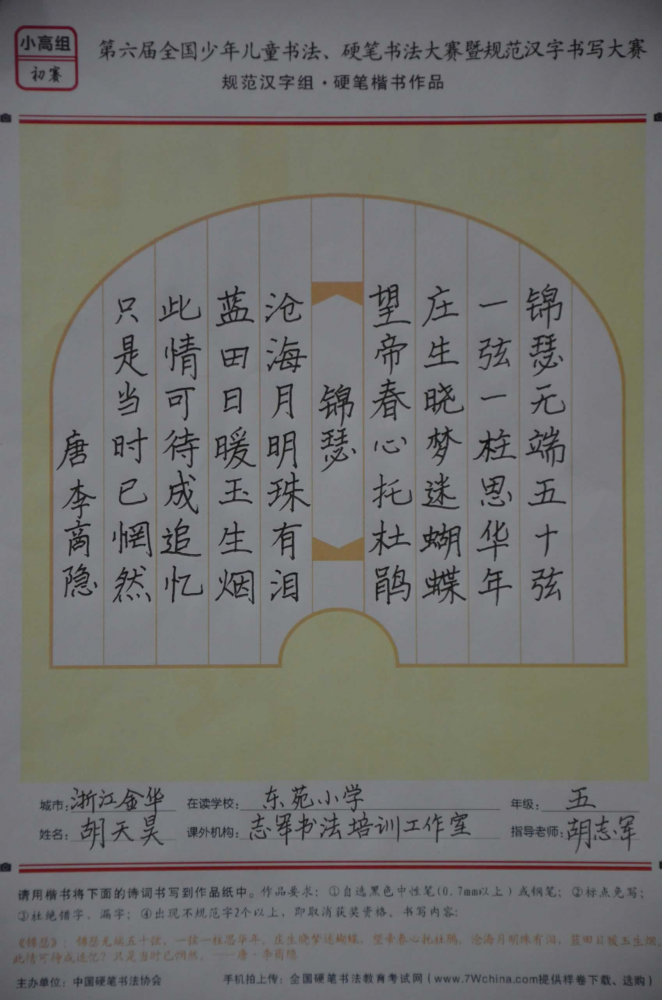 小高组
初赛
第六届全国少年儿童书法、硬笔书法大赛暨规范汉字书写大赛
规范汉字组·硬笔楷书作品
锦瑟无端五十弦
一弦一柱思华年
庄生晓梦迷蝴蝶
望帝春心托杜鹃
锦瑟
沧海月明珠有泪
蓝田日暖玉生烟
此情可待成追忆
只是当时已惘然
唐 李商隐
城市：浙江金华 在读学校：东苑小学 年级：五
姓名：胡天昊 课外机构：志军书法培训工作室 指导老师：胡志军
请用楷书将下面的诗词书写到作品纸中。作品要求：①自选黑色中性笔（0.7mm以上）或钢笔；②标点免写；
③杜绝错字、漏字；④出现不规范字2个以上，即取消获奖资格。书写内容：
《锦瑟》：锦瑟无端五十弦，一弦一柱思华年。庄生晓梦迷蝴蝶，望帝春心托杜鹃。沧海月明珠有泪，蓝田日暖玉生烟。
此情可待成追忆？只是当时已惘然。——唐·李商隐
主办单位：中国硬笔书法协会 手机拍上传：全国硬笔书法教育考试网（www.7Wchina.com提供样卷下载、选购）